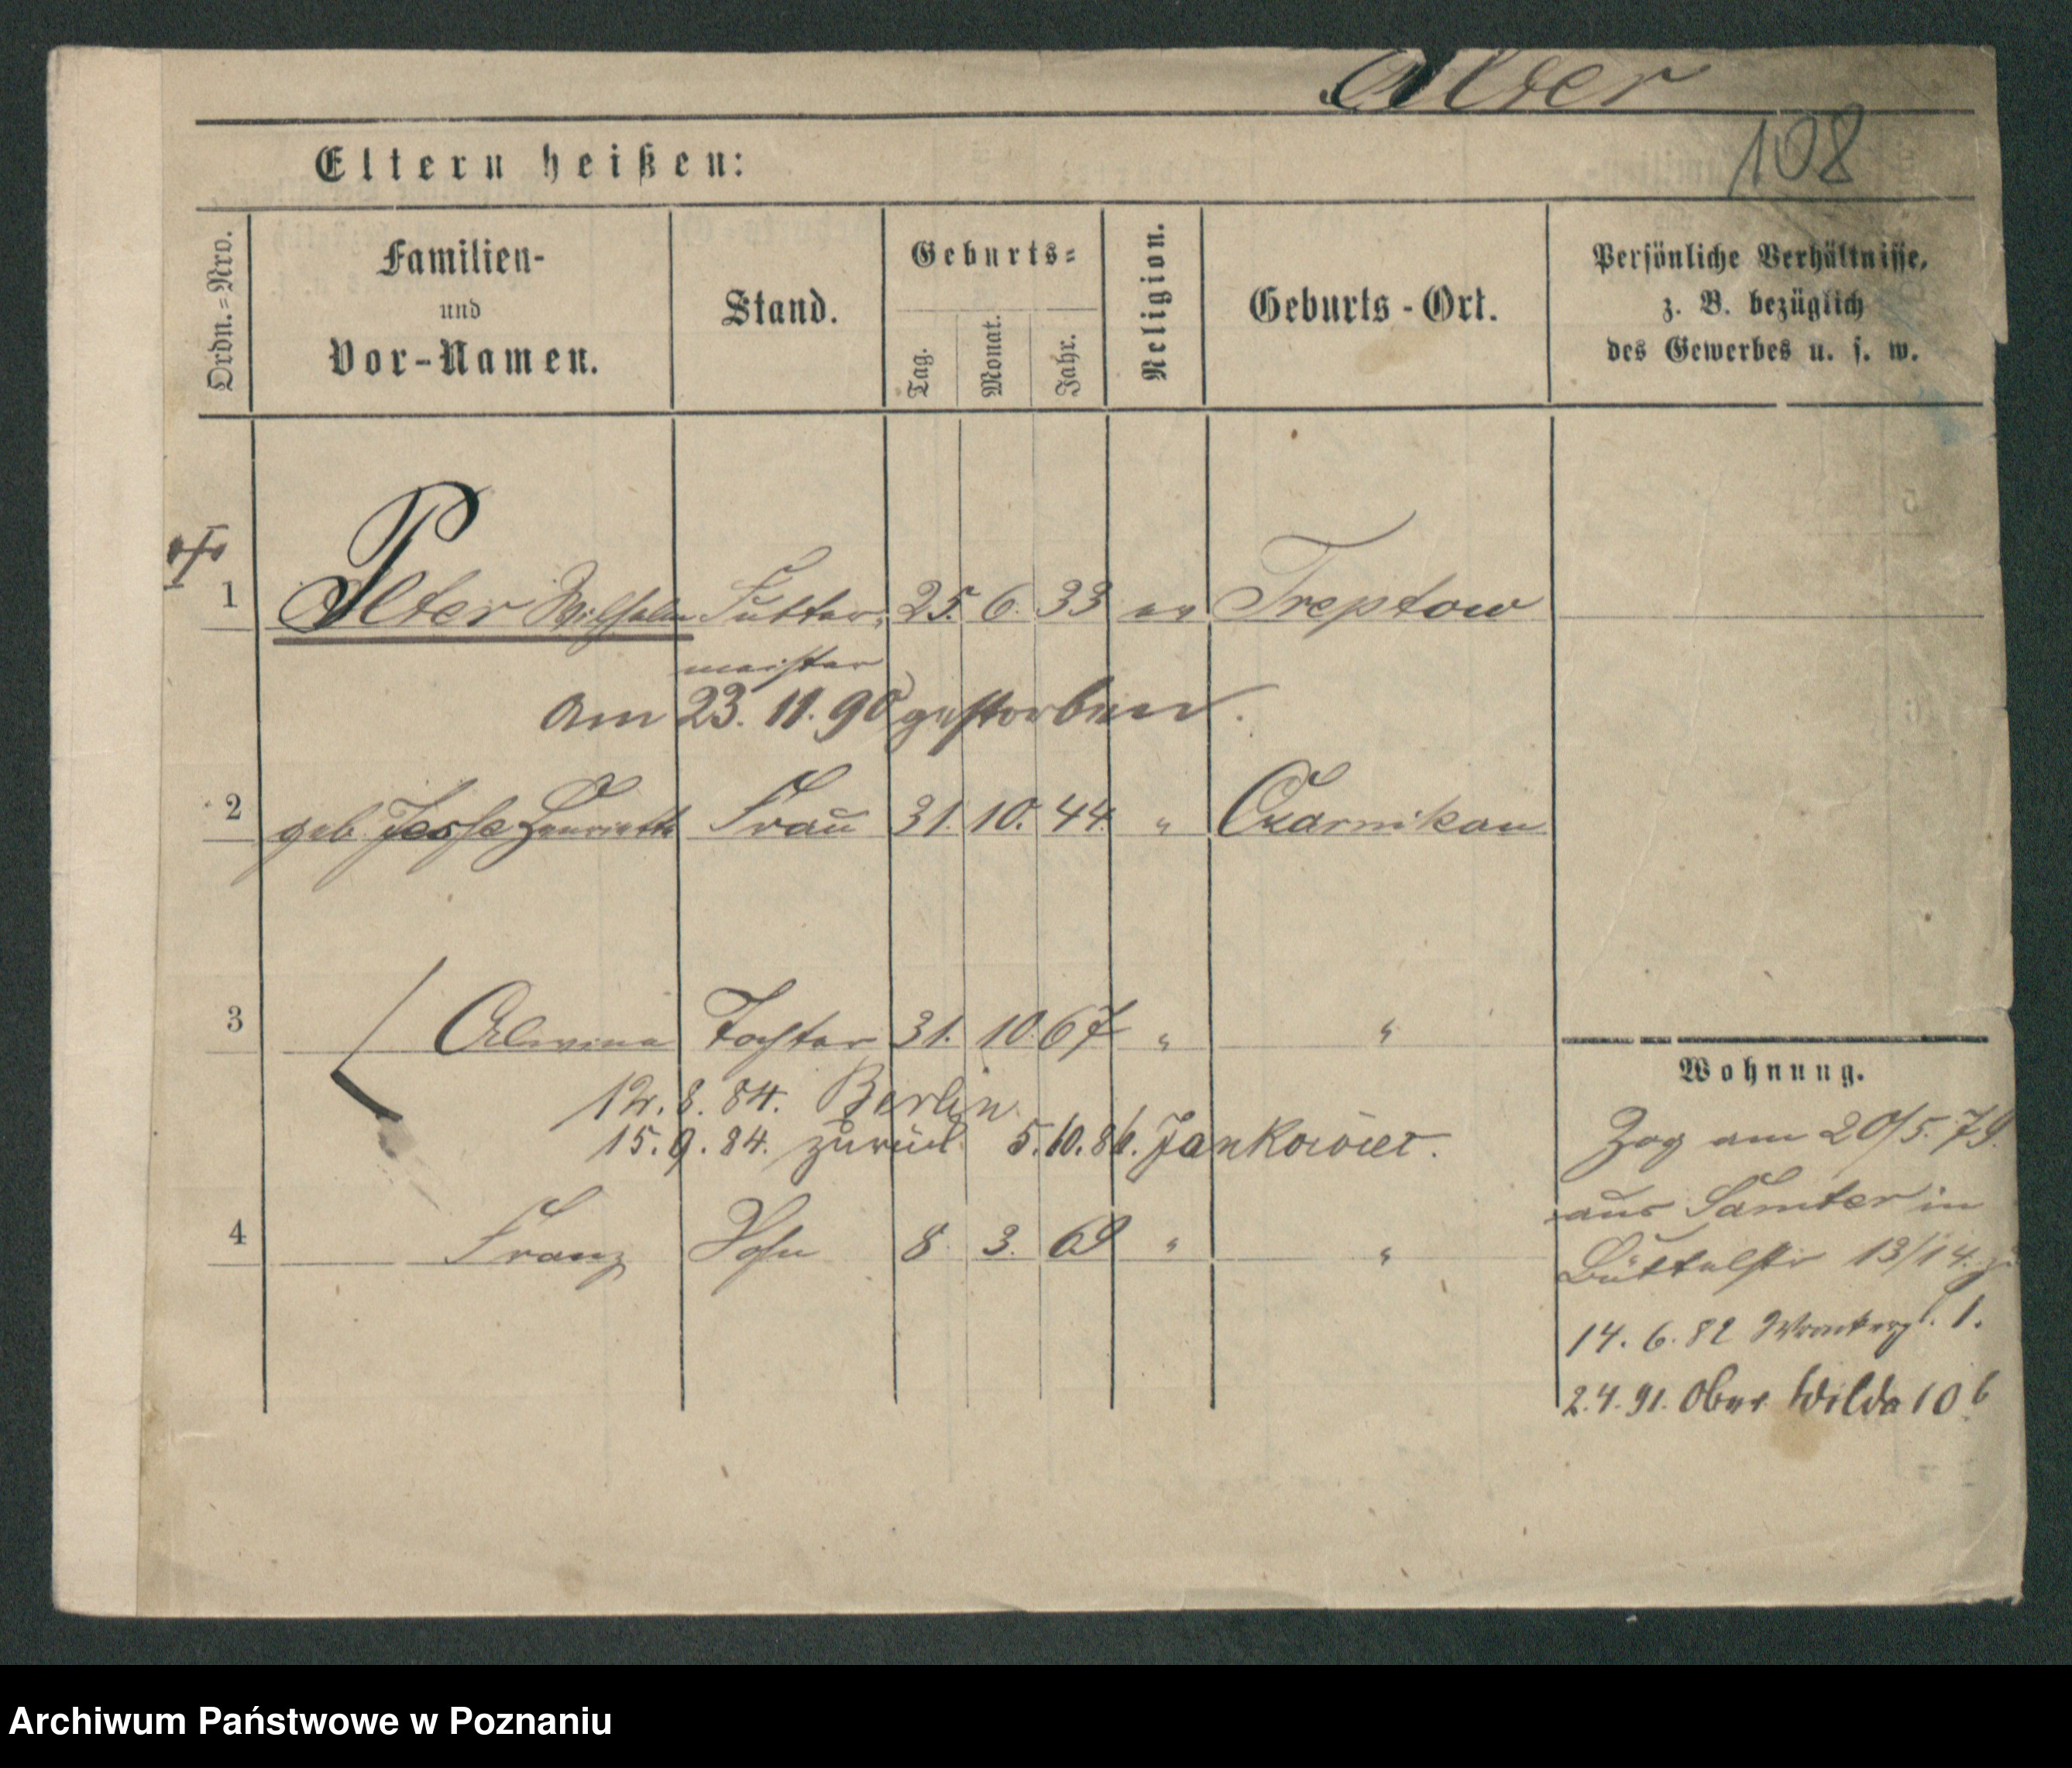 Alter
108
Eltern heißen:
Ordn.=Nro.
Familien-
und
Vor-Namen.
Stand.
Geburts=
Tag.
Monat.
Jahr.
Religion.
Geburts-Ort.
Persönliche Verhältnisse,
z. B. bezüglich
des Gewerbes u. s. w.
1 Alter Wilhelm Futter- 25. 6. 33 ev Treptow
meister
am 23. 11. 90 gestorben.
2 geb. Jesse Henriette Frau 31. 10. 44. " Czarnikau
3 Alwine Tochter 31. 10. 67 " "
12. 8. 84. Berlin
15. 9. 84. zurück 5. 10. 86. Jankowiec.
4 Franz Sohn 8. 3. 69 " "
Wohnung.
Zog am 20/5. 79.
aus Samter in
Büttelstr 13/14.
14. 6. 82 1.
2. 4. 91. Ober Wilda 10 b
Archiwum Państwowe w Poznaniu